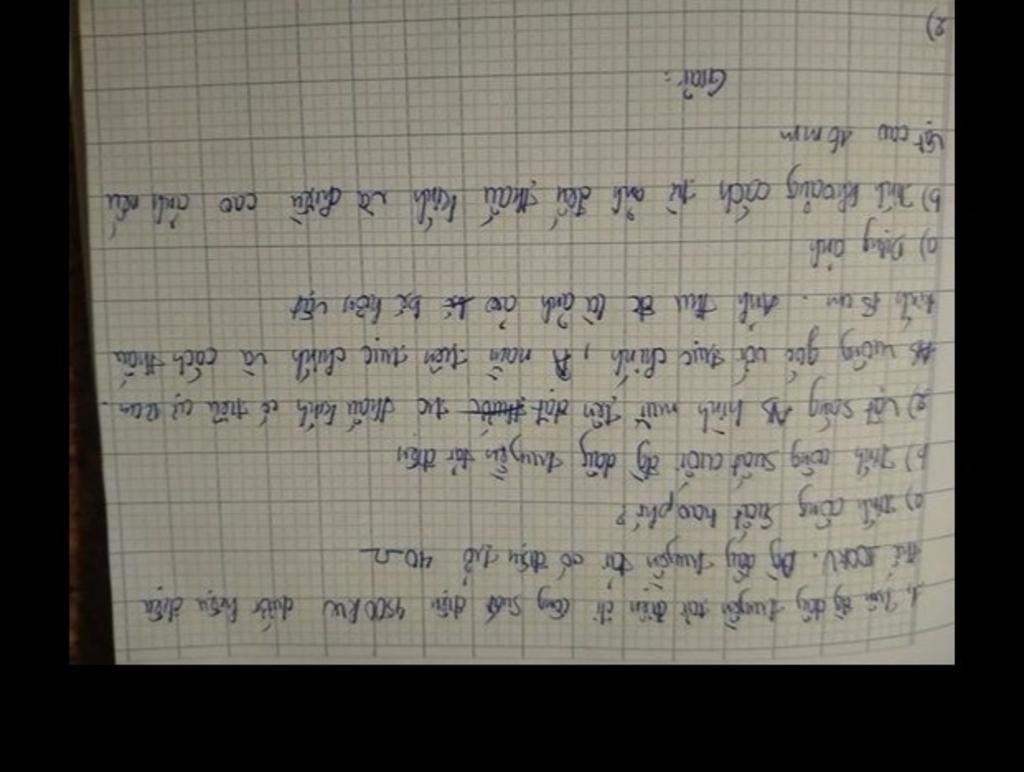 1. Trên đg dây truyền tải điện đi công suất điện 4500KW dưới hiệu điện
thế 100KV. Đg dây truyền tải có điện trở 40Ω
a) Tính công suất hao phí?
b) Tính công suất cuối đg dây truyền tải điện
2) Vật sáng AB hình mũi tên đặt trc thấu kính có tiêu cự 12cm.
AB vuông góc với trục chính, A nằm trên trục chính và cách thấu
kính 18 cm. Ảnh thu đc là ảnh ảo bé hơn vật
a) Dựng ảnh
b) Tính khoảng cách từ ảnh đến thấu kính và chiều cao ảnh nếu
vật cao 16mm
Giải:
2)